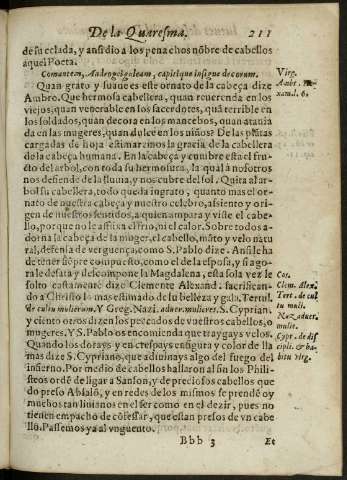 De la Quaresma. 211
de su celada, y ansi dio a los penachos nõbre de cabellos
aquel Poeta.
Comantem, Androgei galeam, capitique insigne decorum.
Virg.
Quan grato y suaue es este ornato de la cabeça dize
Ambr. He-
Ambro. Que hermosa cabellera, quan reuerenda en los
xam. l. 6.
viejos, quan venerable en los sacerdotes, quã terrible en
los soldados, quan decora en los mancebos, quan atauia
da en las mugeres, quan dulce en los niños? De las plãtas
cargadas de hoja estimarẽmos la gracia de la cabellera
de la cabeça humana. En la cabeça y cumbre esta el fru-
cto del arbol, con toda su hermosura, la qual à nosotros
nos defiende de la lluuia, y nos cubre del sol. Quita al ar-
bol su cabellera, todo queda ingrato, quanto mas el or-
nato de nuestra cabeça y nuestro celebro, assiento y ori-
gen de nuestros sentidos, a quien ampara y viste el cabe-
llo, porque no le affixa el frio, ni el calor. Sobre todos a-
dorna la cabeça de la muger, el cabello, mãto y velo natu
ral, defensa de verguença, como S. Pablo dize. Ansi le ha
de tener siẽpre compuesto, como el de la esposa, y si ago-
ra le desata y descompone la Magdalena, esta sola vez le
Cas.
solto castamente dize Clemente Alexand. sacrifican-
Clem. Alex.
do a Christo lo mas estimado de su belleza y gala. Tertul.
Tert. de cul
de cultu mulierum. Y Greg. Nazi. aduer. mulieres. S. Cyprian.
tu muli.
y ciento otros dizen los peccados de vuestros cabellos, o
Naz. aduer.
mugeres. Y S. Pablo os encomienda que traygays velos.
mulie.
Quando los dorays y encrespays en figura y color de lla
Cypr. de dis
mas dize S. Cypriano, que adiuinays algo del fuego del
cipli. & ha-
infierno. Por medio de cabellos hallaron alla los Phili-
bitu virg.
steos ordẽ de ligar a Sanson, y de preciosos cabellos que
do preso Absalõ, y en redes de los mismos se prende oy
muchos tan liuianos en el ser como en el dezir, pues no
tienen empacho de cõfessar, que estan presos de vn cabe
llo. Passemos ya al vnguento.
Bbb 3 Et